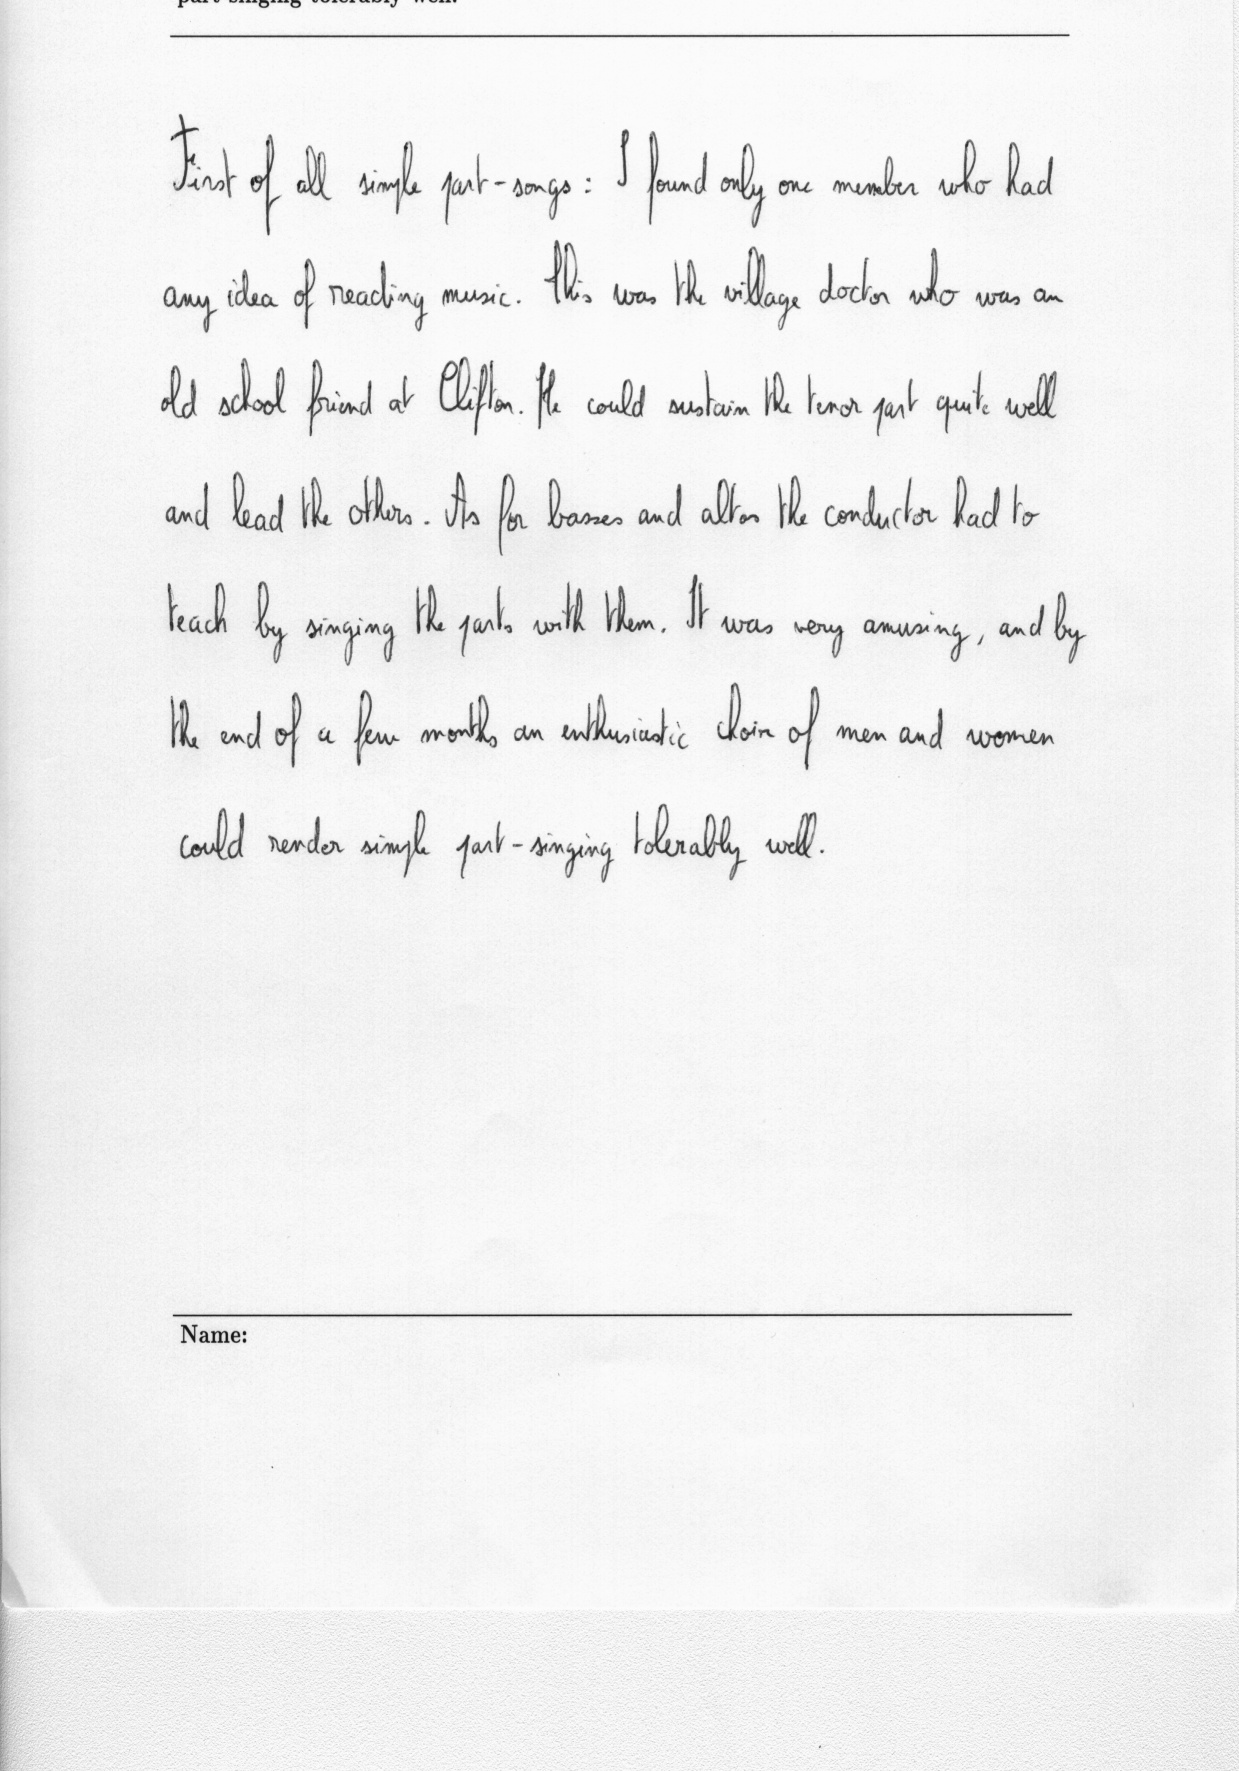 part-singing tolerably well.
First of all simple part-songs : I found only one member who had
any idea of reading music. This was the village doctor who was an
old school friend at Clifton. He could sustain the tenor part quite well
and lead the others. As for basses and altos the conductor had to
teach by singing the parts with them. It was very amusing, and by
the end of a few months an enthusiastic choir of men and women
could render simple part-singing tolerably well.
Name: